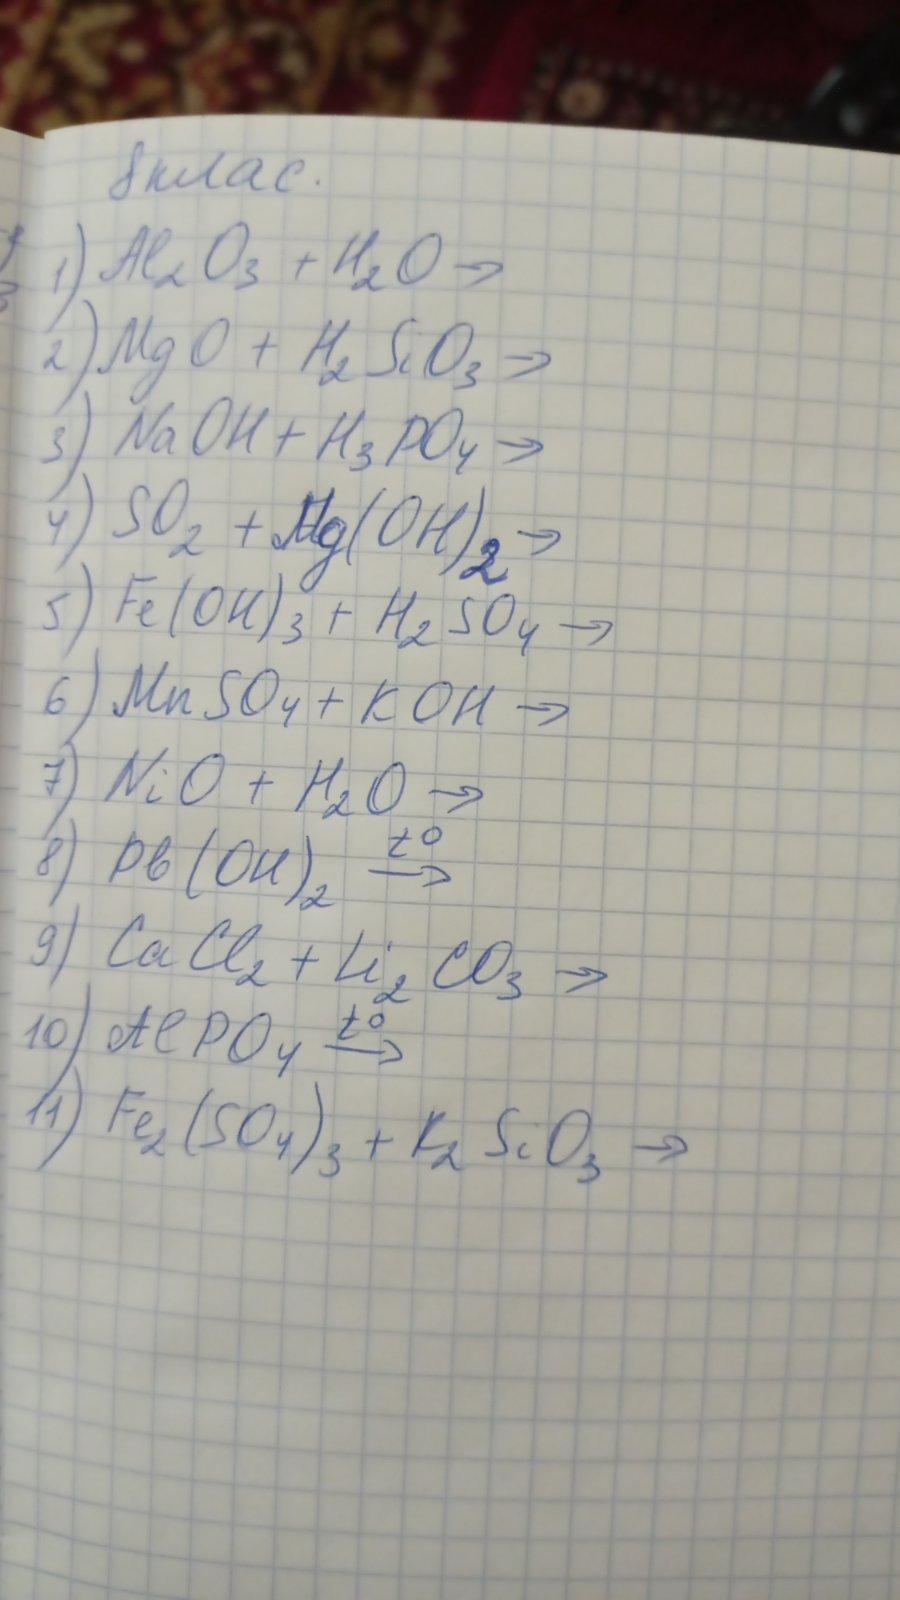 8 клас.
1) Al₂O₃ + H₂O →
2) MgO + H₂SiO₃ →
3) NaOH + H₃PO₄ →
4) SO₂ + Mg(OH)₂ →
5) Fe(OH)₃ + H₂SO₄ →
6) MnSO₄ + KOH →
7) NiO + H₂O →
8) Pb(OH)₂ t° →
9) CaCl₂ + Li₂CO₃ →
10) AlPO₄ t° →
11) Fe₂(SO₄)₃ + K₂SiO₃ →